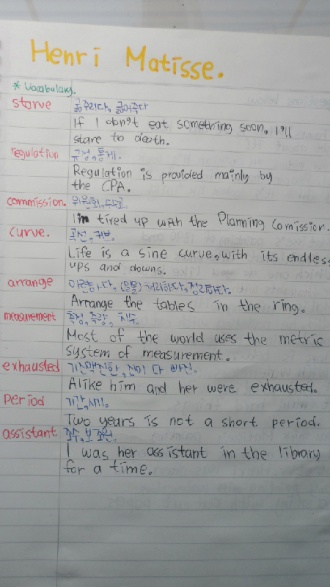 Henri Matisse.
* Vocabulary.
starve 굶주리다, 굶어죽다
If I don't eat something soon, I'll
starve to death.
regulation 규정, 통제.
Regulation is provided mainly by
the CPA.
commission. 위원회,
I'm tired up with the Planning Comission.
curve. 곡선, 커브
Life is a sine curve, with its endless
ups and downs.
arrange
Arrange the tables in the ring.
measurement 측정, 측량, 치수
Most of the world uses the metric
system of measurement.
exhausted 기진맥진한, 진이 다 빠진.
Alike him and her were exhausted.
Period 기간, 시기.
Two years is not a short period.
assistant 조수, 보조원.
I was her assistant in the library
for a time.